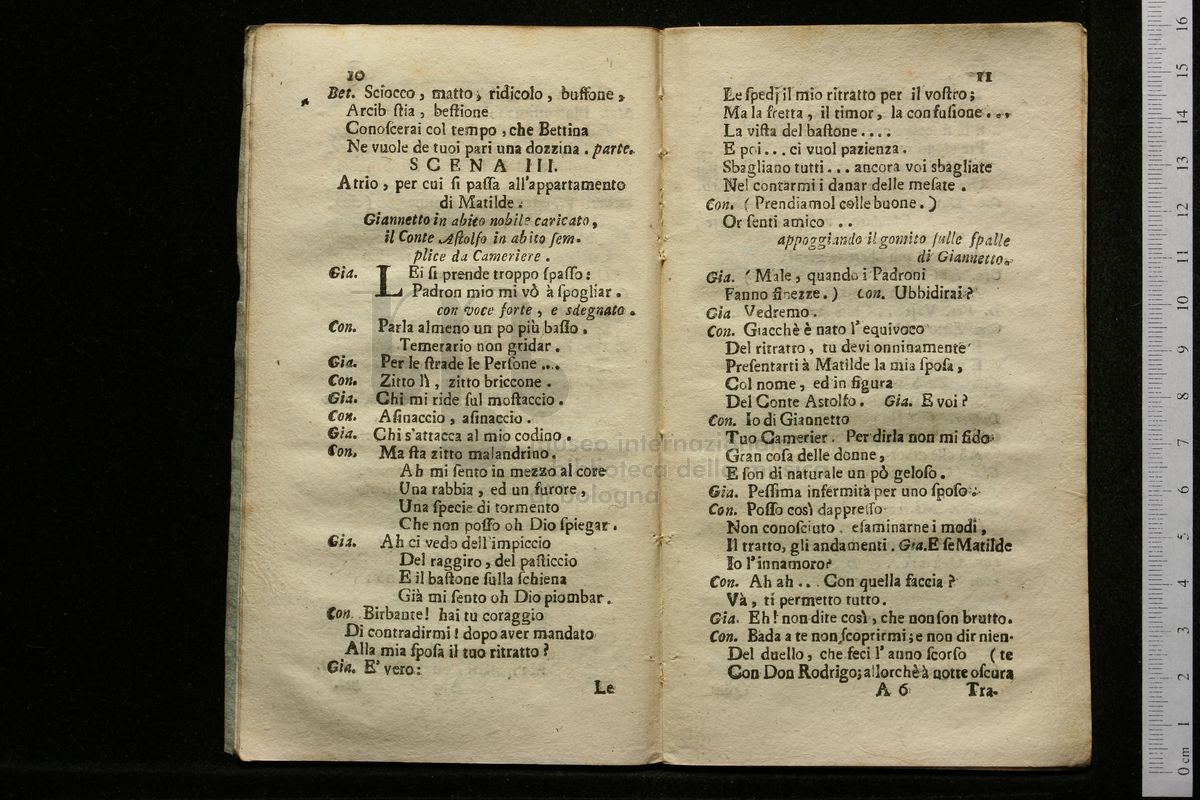 10
Bet. Sciocco, matto, ridicolo, buffone,
Arcib ſtia, beſtione
Conoſcerai col tempo, che Bettina
Ne vuole de tuoi pari una dozzina. parte.
SCENA III.
Atrio, per cui ſi paſſa all'appartamento
di Matilde.
Giannetto in abito nobile caricato,
il Conte Aſtolfo in abito ſem-
plice da Cameriere.
Gia. LEi ſi prende troppo ſpaſſo:
Padron mio mi vò à ſpogliar.
con voce forte, e sdegnato.
Con. Parla almeno un po più baſſo.
Temerario non gridar.
Gia. Per le ſtrade le Perſone ...
Con. Zitto lì, zitto briccone.
Gia. Chi mi ride ſul moſtaccio.
Con. Aſinaccio, aſinaccio.
Gia. Chi s'attacca al mio codino.
Con. Ma ſta zitto malandrino.
Ah mi ſento in mezzo al core
Una rabbia, ed un furore,
Una ſpecie di tormento
Che non poſſo oh Dio ſpiegar.
Gia. Ah ci vedo dell'impiccio
Del raggiro, del paſticcio
E il baſtone ſulla ſchiena
Già mi ſento oh Dio piombar.
Con. Birbante! hai tu coraggio
Di contradirmi! dopo aver mandato
Alla mia ſpoſa il tuo ritratto?
Gia. E' vero:
Le
11
Le ſpedj il mio ritratto per il voſtro;
Ma la fretta, il timor, la confuſione...
La viſta del baſtone....
E poi... ci vuol pazienza.
Sbagliano tutti... ancora voi sbagliate
Nel contarmi i danar delle meſate.
Con. (Prendiamol colle buone.)
Or ſenti amico ..
appoggiando il gomito ſulle ſpalle
di Giannetto.
Gia. (Male, quando i Padroni
Fanno finezze.) Con. Ubbidirai?
Gia Vedremo.
Con. Giacchè è nato l'equivoco
Del ritratto, tu devi onninamente
Preſentarti à Matilde la mia ſpoſa,
Col nome, ed in figura
Del Conte Aſtolfo. Gia. E voi?
Con. Io di Giannetto
Tuo Camerier. Per dirla non mi fido
Gran coſa delle donne,
E ſon di naturale un pò geloſo.
Gia. Peſſima infermità per uno ſpoſo.
Con. Poſſo così dappreſſo
Non conoſciuto. eſaminarne i modi,
Il tratto, gli andamenti. Gia. E ſe Matilde
Io l'innamoro?
Con. Ah ah .. Con quella faccia?
Và, ti permetto tutto.
Gia. Eh! non dite così, che non ſon brutto.
Con. Bada a te non ſcoprirmi; e non dir nien-
Del duello, che feci l'anno ſcorſo (te
Con Don Rodrigo; allorchè à notte oſcura
A 6 Tra-
museo internazionale
biblioteca della musica
di bologna
0 cm 1 2 3 4 5 6 7 8 9 10 11 12 13 14 15 16